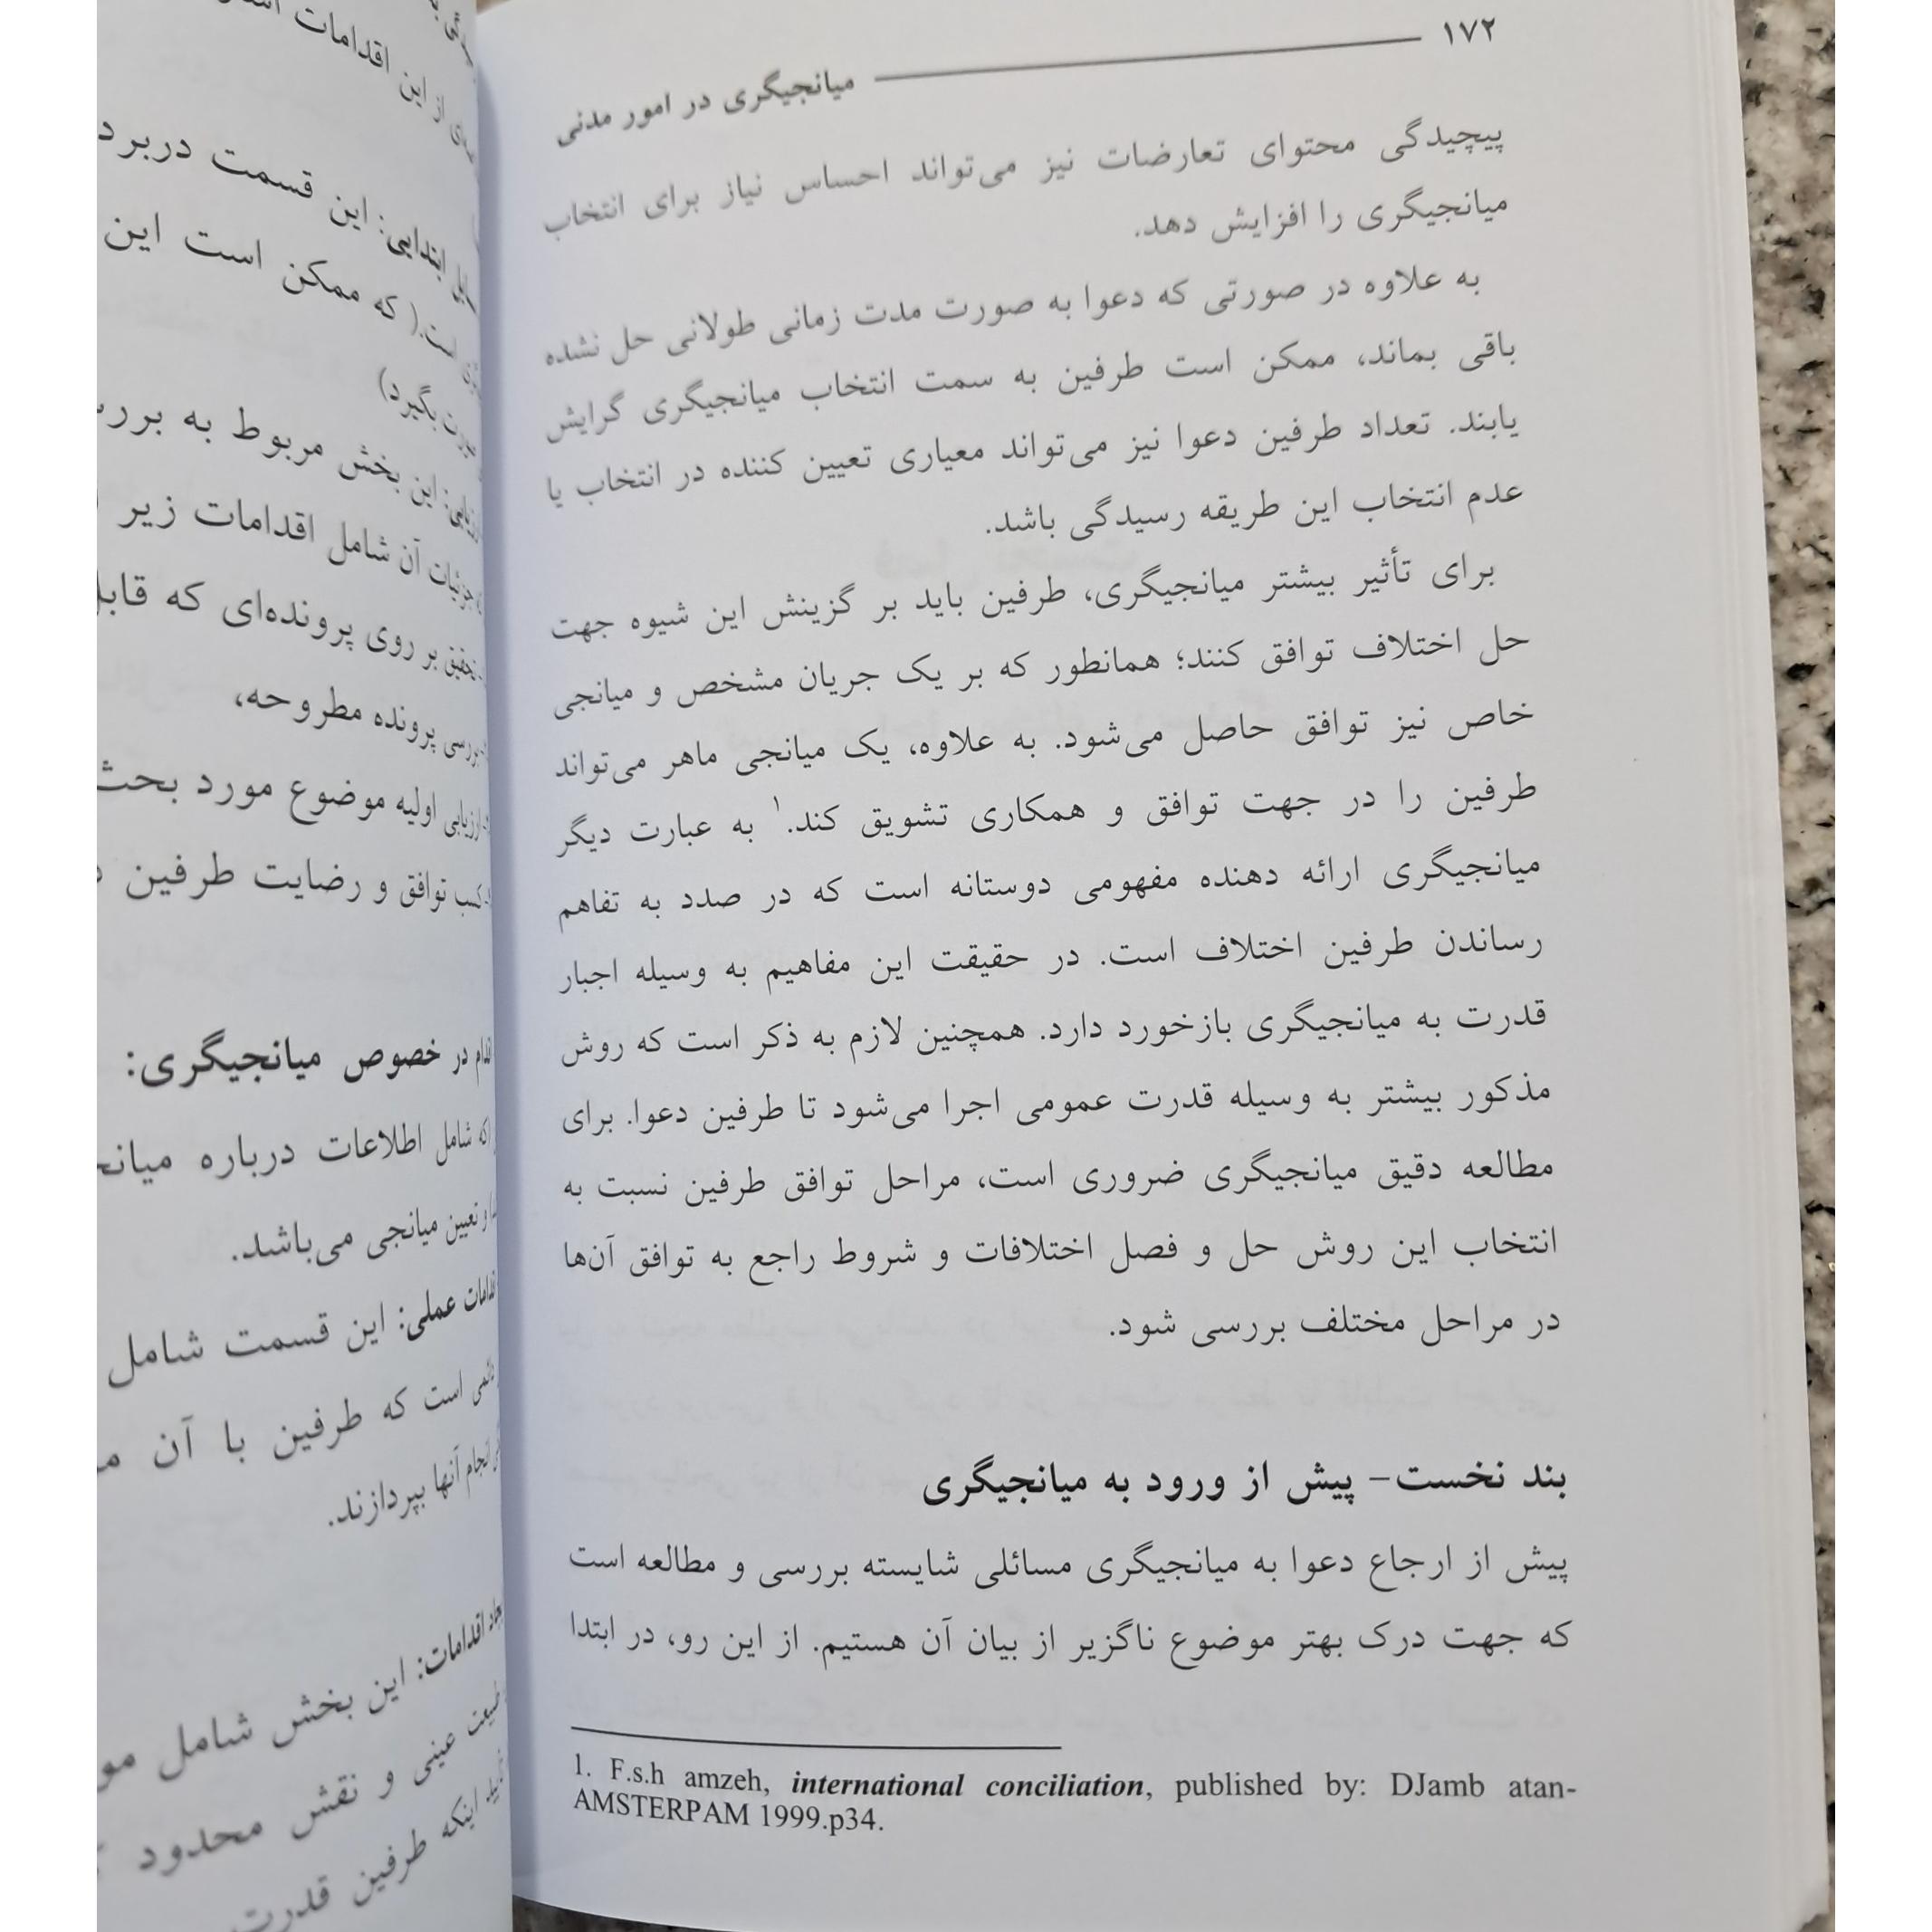 ۱۷۲
میانجیگری در امور مدنی
پیچیدگی محتوای تعارضات نیز می‌تواند احساس نیاز برای انتخاب
میانجیگری را افزایش دهد.
به علاوه در صورتی که دعوا به صورت مدت زمانی طولانی حل نشده
باقی بماند، ممکن است طرفین به سمت انتخاب میانجیگری گرایش
یابند. تعداد طرفین دعوا نیز می‌تواند معیاری تعیین کننده در انتخاب یا
عدم انتخاب این طریقه رسیدگی باشد.
برای تأثیر بیشتر میانجیگری، طرفین باید بر گزینش این شیوه جهت
حل اختلاف توافق کنند؛ همانطور که بر یک جریان مشخص و میانجی
خاص نیز توافق حاصل می‌شود. به علاوه، یک میانجی ماهر می‌تواند
طرفین را در جهت توافق و همکاری تشویق کند.۱ به عبارت دیگر
میانجیگری ارائه دهنده مفهومی دوستانه است که در صدد به تفاهم
رساندن طرفین اختلاف است. در حقیقت این مفاهیم به وسیله اجبار
قدرت به میانجیگری بازخورد دارد. همچنین لازم به ذکر است که روش
مذکور بیشتر به وسیله قدرت عمومی اجرا می‌شود تا طرفین دعوا. برای
مطالعه دقیق میانجیگری ضروری است، مراحل توافق طرفین نسبت به
انتخاب این روش حل و فصل اختلافات و شروط راجع به توافق آن‌ها
در مراحل مختلف بررسی شود.
بند نخست- پیش از ورود به میانجیگری
پیش از ارجاع دعوا به میانجیگری مسائلی شایسته بررسی و مطالعه است
که جهت درک بهتر موضوع ناگزیر از بیان آن هستیم. از این رو، در ابتدا
1. F.s.h amzeh, international conciliation, published by: DJamb atan-
AMSTERPAM 1999.p34.
از این اقدامات
ابتدایی: این قسمت
است.( که ممکن است این
بگیرد)
این بخش مربوط به
جزئیات آن شامل اقدامات زیر
تحقیق بر روی پرونده‌ای که
بررسی پرونده مطروحه،
ارزیابی اولیه موضوع مورد بحث
کسب توافق و رضایت طرفین
در خصوص میانجیگری:
که شامل اطلاعات درباره
و تعیین میانجی می‌باشد.
عملی: این قسمت شامل
است که طرفین با آن
انجام آنها بپردازند.
اقدامات: این بخش شامل
عینی و نقش محدود
اینکه طرفین قدرت